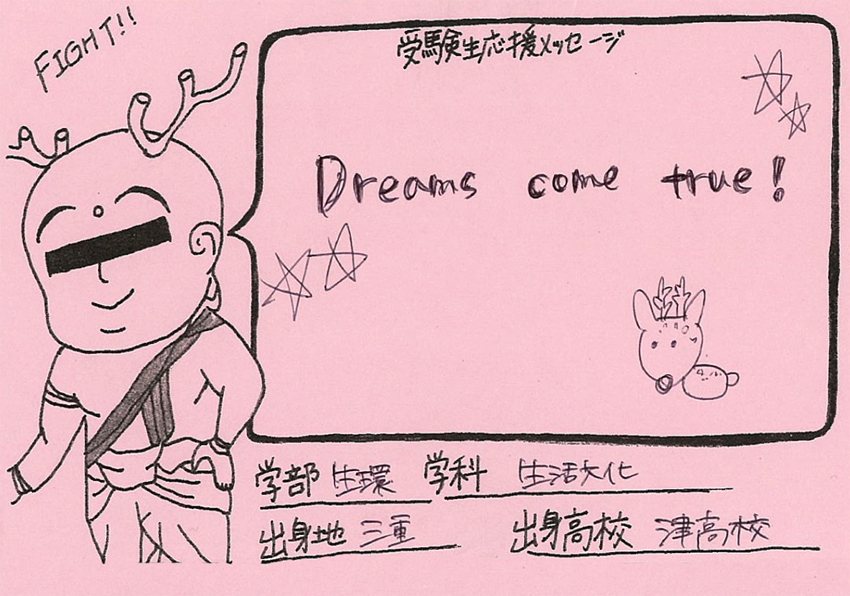 FIGHT!!
受験生応援メッセージ
Dreams come true!
学部 生環 学科 生活文化
出身地 三重 出身高校 津高校